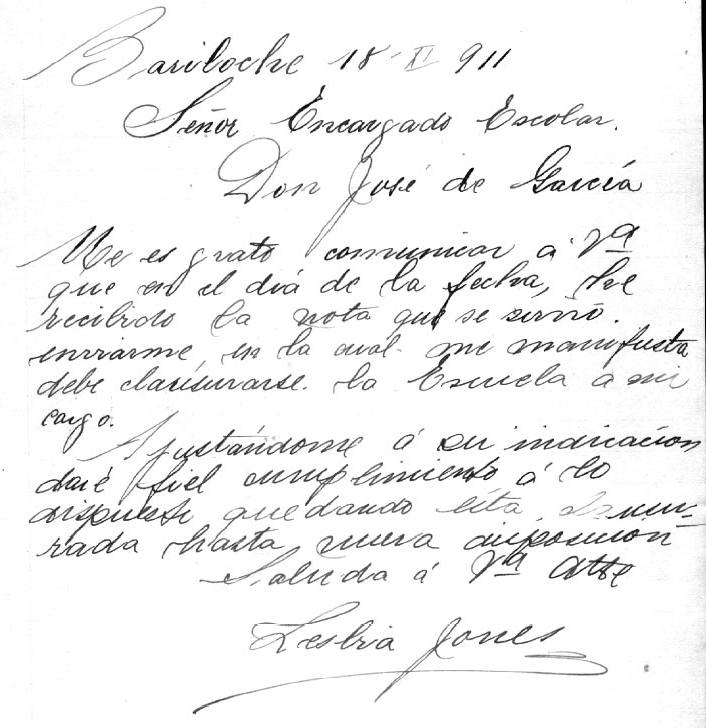 Bariloche 18 XI 911
Señor Encargado Escolar.
Don José de García
Me es grato comunicar a Vª
que en el dia de la fecha, he
recibido la nota que se sirvió.
enviarme, en la cual me manifiesta
debe clausurarse la Escuela a mi
cargo.
Ajustándome á su indicación
daré fiel cumplimiento á lo
dispuesto quedando esta
rada hasta nueva disposición
Saluda á Vª Atte
Lesbia Jones